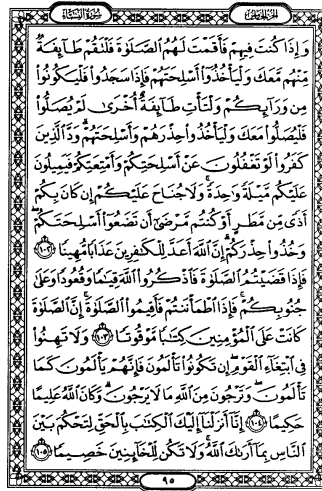 الجزء الخامس
سورة النساء
وَإِذَا كُنتَ فِيهِمْ فَأَقَمْتَ لَهُمُ الصَّلَوٰةَ فَلْتَقُمْ طَآئِفَةٌ
مِّنْهُم مَّعَكَ وَلْيَأْخُذُوٓا۟ أَسْلِحَتَهُمْ فَإِذَا سَجَدُوا۟ فَلْيَكُونُوا۟
مِن وَرَآئِكُمْ وَلْتَأْتِ طَآئِفَةٌ أُخْرَىٰ لَمْ يُصَلُّوا۟
فَلْيُصَلُّوا۟ مَعَكَ وَلْيَأْخُذُوا۟ حِذْرَهُمْ وَأَسْلِحَتَهُمْ ۗ وَدَّ الَّذِينَ
كَفَرُوا۟ لَوْ تَغْفُلُونَ عَنْ أَسْلِحَتِكُمْ وَأَمْتِعَتِكُمْ فَيَمِيلُونَ
عَلَيْكُم مَّيْلَةً وَٰحِدَةً ۚ وَلَا جُنَاحَ عَلَيْكُمْ إِن كَانَ بِكُمْ
أَذًى مِّن مَّطَرٍ أَوْ كُنتُم مَّرْضَىٰٓ أَن تَضَعُوٓا۟ أَسْلِحَتَكُمْ ۖ
وَخُذُوا۟ حِذْرَكُمْ ۗ إِنَّ اللَّهَ أَعَدَّ لِلْكَٰفِرِينَ عَذَابًا مُّهِينًا ١٠٢
فَإِذَا قَضَيْتُمُ الصَّلَوٰةَ فَاذْكُرُوا۟ اللَّهَ قِيَٰمًا وَقُعُودًا وَعَلَىٰ
جُنُوبِكُمْ ۚ فَإِذَا اطْمَأْنَنتُمْ فَأَقِيمُوا۟ الصَّلَوٰةَ ۚ إِنَّ الصَّلَوٰةَ
كَانَتْ عَلَى الْمُؤْمِنِينَ كِتَٰبًا مَّوْقُوتًا ١٠٣ وَلَا تَهِنُوا۟
فِى ابْتِغَآءِ الْقَوْمِ ۖ إِن تَكُونُوا۟ تَأْلَمُونَ فَإِنَّهُمْ يَأْلَمُونَ كَمَا
تَأْلَمُونَ ۖ وَتَرْجُونَ مِنَ اللَّهِ مَا لَا يَرْجُونَ ۗ وَكَانَ اللَّهُ عَلِيمًا
حَكِيمًا ١٠٤ إِنَّآ أَنزَلْنَآ إِلَيْكَ الْكِتَٰبَ بِالْحَقِّ لِتَحْكُمَ بَيْنَ
النَّاسِ بِمَآ أَرَىٰكَ اللَّهُ ۚ وَلَا تَكُن لِّلْخَآئِنِينَ خَصِيمًا ١٠٥
٩٥